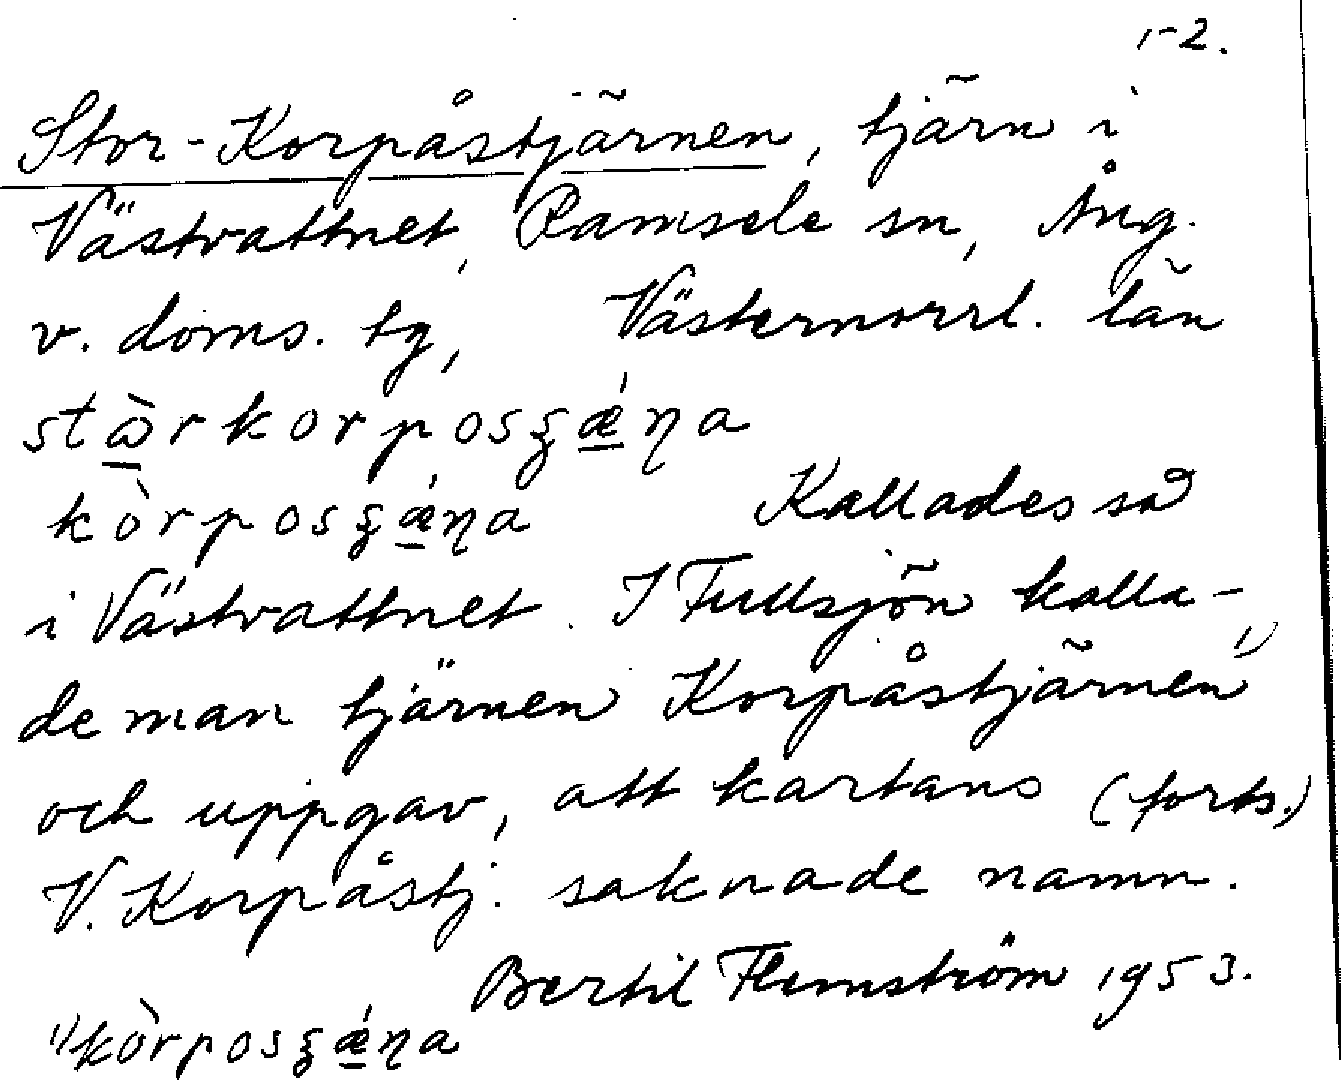 1-2.
Stor-Korpåstjärnen, tjärn i
Västvattnet, Ramsele sn, Ång.
v. doms. tg, Västernorrl. län
kòrposʂǽɳa Kallades så
i Västvattnet. I Fullsjön kalla-
de man tjärnen Korpåstjärnen 1)
och uppgav, att kartans (forts.)
V. Korpåstj. saknade namn.
Bertil Flemström 1953.
1) kòrposʂǽɳa